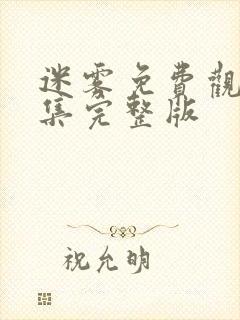 迷雾免費觀
集完整版
祝允明